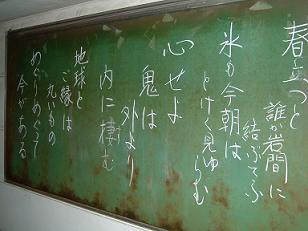 春立つと
誰か岩間に
結ぶてふ
氷も今朝は
とけて見ゆらむ
心せよ
鬼は
外より
内に棲む
地球と
ご縁は
丸いもの
めぐりめぐって
今がある